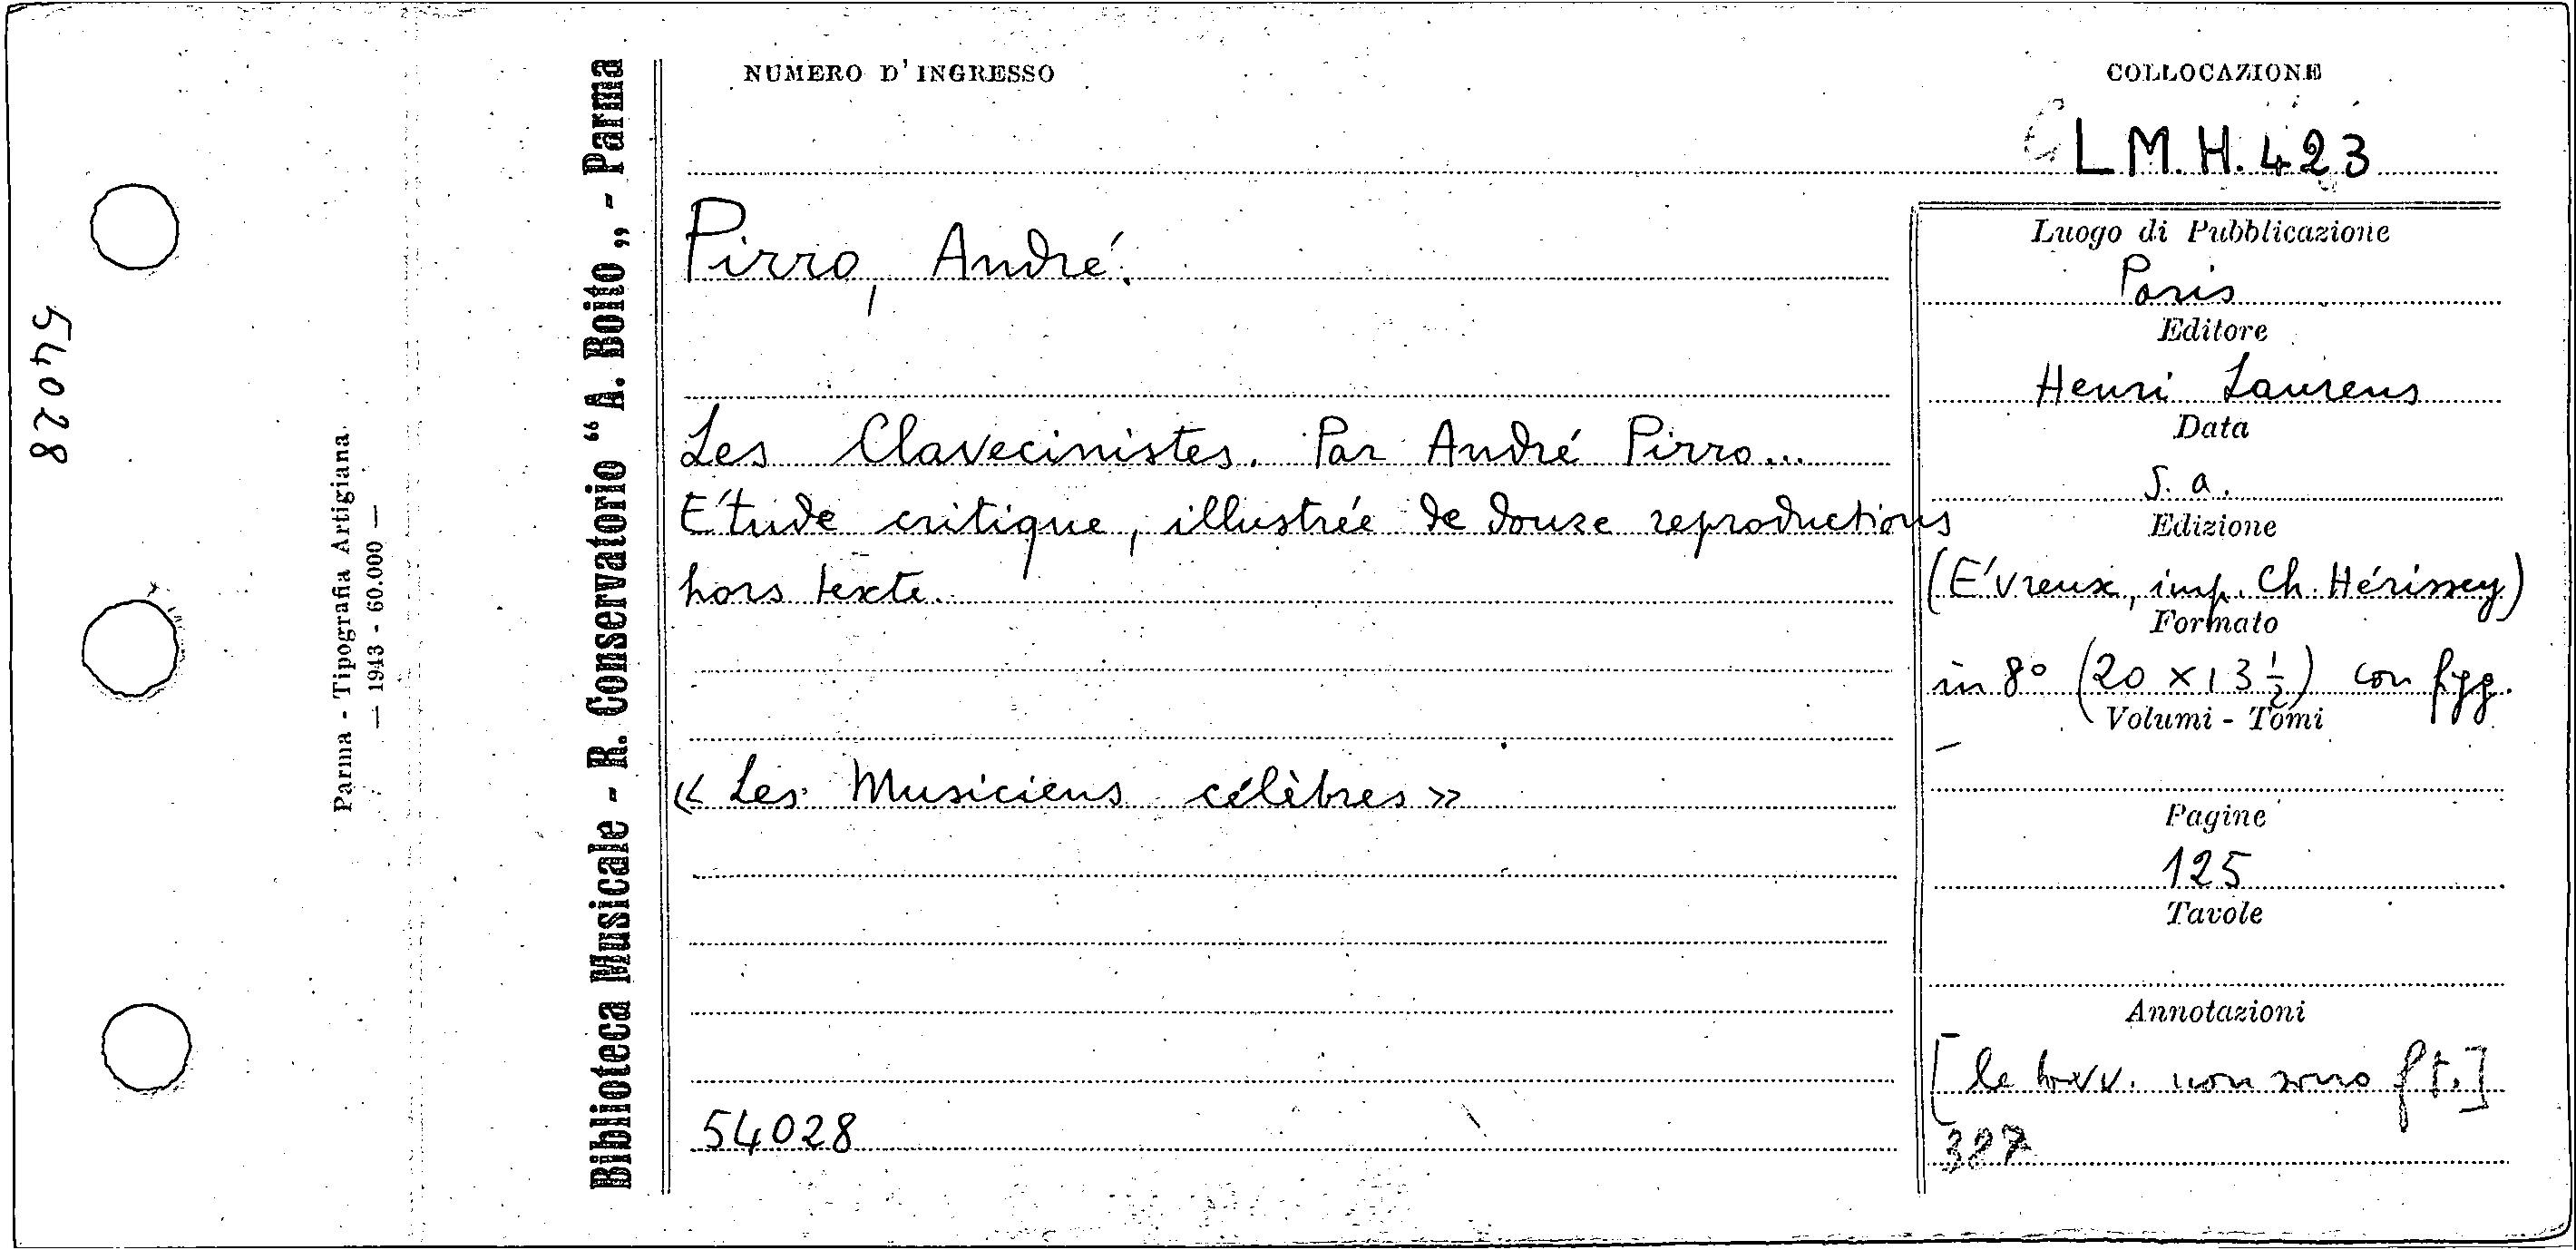 54028
Parma - Tipografia Artigiana
— 1943 - 60.000 —
Biblioteca Musicale - R. Conservatorio “A. Boito„ - Parma
NUMERO D'INGRESSO
COLLOCAZIONE
L M. H. 423
Pirro, André.
Les Clavecinistes. Par André Pirro...
Étude critique, illustrée de douze reproductions
hors texte.
« Les Musiciens célèbres »
54028
Luogo di Pubblicazione
Paris
Editore
Henri Laurens
Data
S. a.
Edizione
(Évreux, imp. Ch. Hérissey)
Formato
in 8° (20 x 13 ½) con figg.
Volumi - Tomi
—
Pagine
125
Tavole
Annotazioni
[le tavv. non sono f.t.]
387